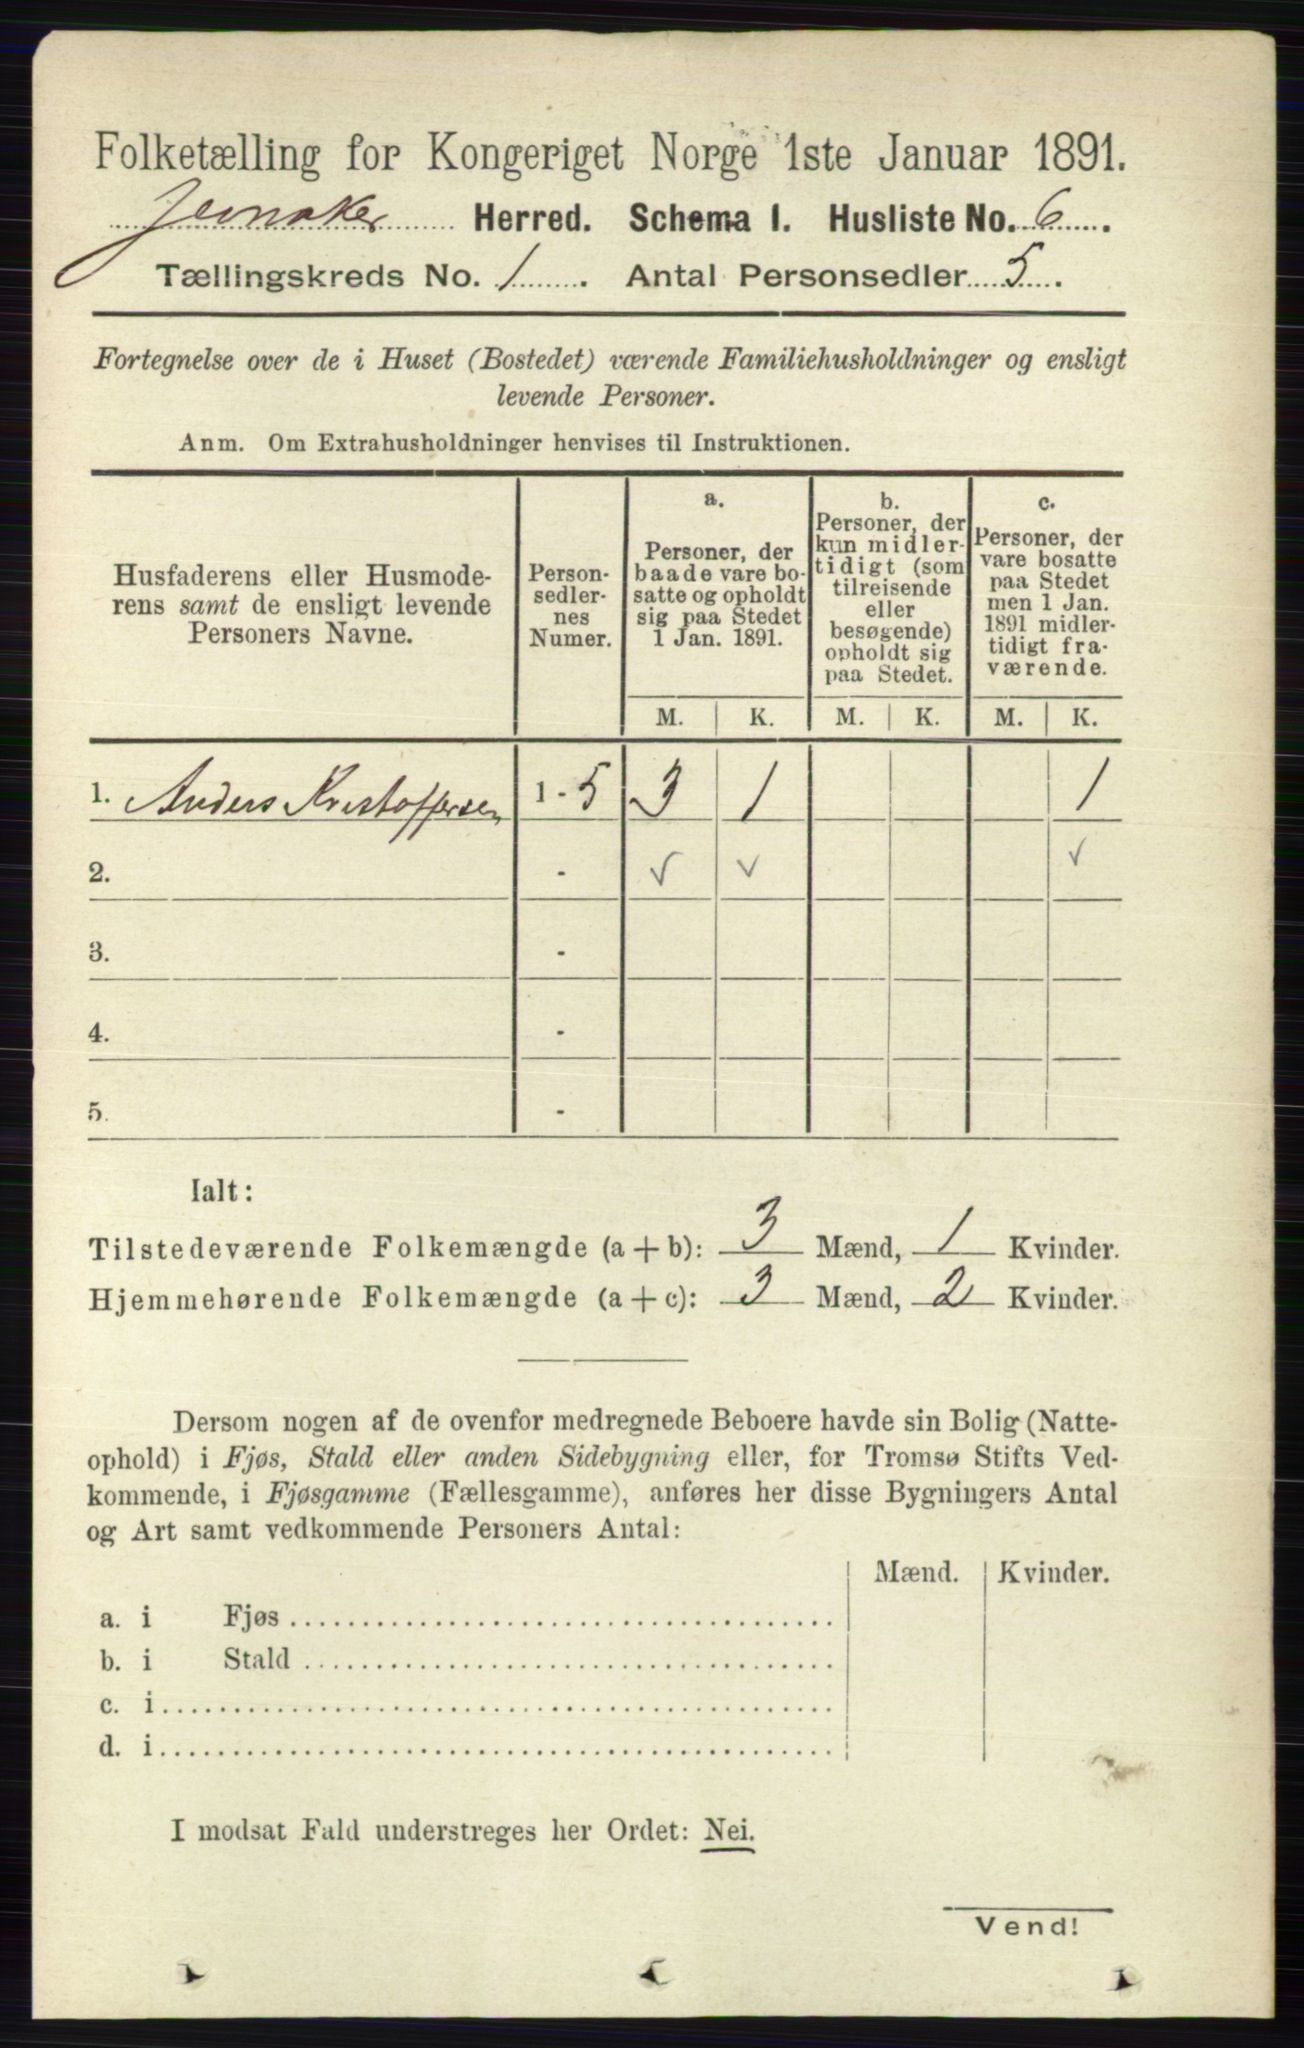 Folketælling for Kongeriget Norge 1ste Januar 1891.
Jevnaker Herred. Schema 1. Husliste No. 6.
Tællingskreds No. 1. Antal Personsedler 5.
Fortegnelse over de i Huset (Bostedet) værende Familiehusholdninger og ensligt
levende Personer.
Anm. Om Extrahusholdninger henvises til Instruktionen.
Husfaderens eller Husmode-
rens samt de ensligt levende
Personers Navne.
Person-
sedler-
nes
Numer.
a.
Personer, der
baade vare bo-
satte og opholdt
sig paa Stedet
1 Jan. 1891.
b.
Personer, der
kun midler-
tidigt (som
tilreisende
eller
besøgende)
opholdt sig
paa Stedet.
c.
Personer, der
vare bosatte
paa Stedet
men 1 Jan.
1891 midler-
tidigt fra-
værende.
M. K. M. K. M. K.
1. Anders Kristoffersen 1 - 5 3 1 1
2. - ✓ ✓ ✓
3. -
4. -
5. -
Ialt:
Tilstedeværende Folkemængde (a + b): 3 Mænd, 1 Kvinder.
Hjemmehørende Folkemængde (a + c): 3 Mænd, 2 Kvinder.
Dersom nogen af de ovenfor medregnede Beboere havde sin Bolig (Natte-
ophold) i Fjøs, Stald eller anden Sidebygning eller, for Tromsø Stifts Ved-
kommende, i Fjøsgamme (Fællesgamme), anføres her disse Bygningers Antal
og Art samt vedkommende Personers Antal:
Mænd. Kvinder.
a. i Fjøs
b. i Stald
c. i
d. i
I modsat Fald understreges her Ordet: Nei.
Vend!